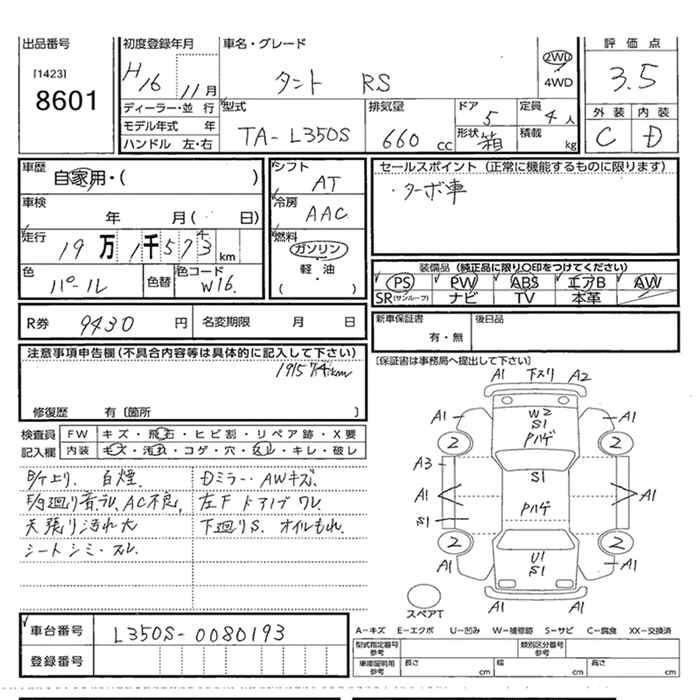 出品番号
[1423]
8601
初度登録年月
H16 11月
車名・グレード
タント RS
2WD
4WD
評価点
3.5
ディーラー・並行
モデル年式 年
ハンドル 左・右
型式
TA-L350S
排気量
660 cc
ドア
5
形状 箱
定員
4人
積載 kg
外装 内装
C D
車歴
自家用・( )
車検
年 月( 日)
走行
19万 1千573 km
4
色
パール
色替
色コード
W16.
シフト
AT
冷房
AAC
燃料
ガソリン
軽・油
( )
セールスポイント (正常に機能するものに限ります)
・ターボ車
装備品 (純正品に限り○印をつけてください)
PS PW ABS エアB AW
SR(サンルーフ) ナビ TV 本革
R券 9430 円
名変期限 月 日
新車保証書
有・無
後日品
注意事項申告欄(不具合内容等は具体的に記入して下さい)
191574km
修復歴 有〔箇所 〕
[保証書は事務局へ提出して下さい]
検査員
記入欄
FW キズ・飛石・ヒビ割・リペア跡・X要
内装 キズ・汚れ・コゲ・穴・スレ・キレ・破レ
白煙. Dミラー・AWキズ.
廻り AC不良,
天張り汚れ大 下廻りS. オイルもれ.
シートシミ・スレ.
A1 下スリ A2
A1 W2 A1
S1
Pハゲ
2 2
A3 S1
A1 A1
Pハゲ
S1
2 2
U1
A1 S1 A1
A1
スペアT
車台番号
L350S-0080193
登録番号
A-キズ E-エクボ U-凹み W-補修跡 S-サビ C-腐食 XX-交換済
型式指定番号
参考
類別区分番号
参考
車庫証明用
参考
長さ cm
幅 cm
高さ cm